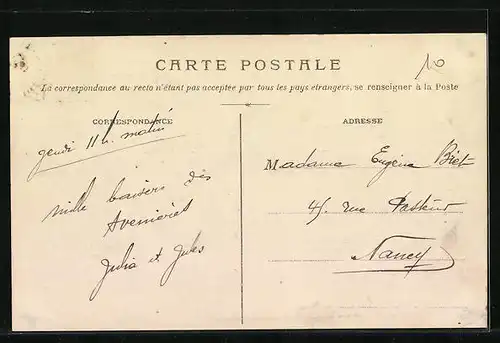 CARTE POSTALE
10
La correspondance au recto n'étant pas acceptée par tous les pays étrangers, se renseigner à la Poste
CORRESPONDANCE
jeudi 11 h. matin
mille baisers dès
Julia et Jules
ADRESSE
Madame Eugène Biet
rue Pasteur
Nancy